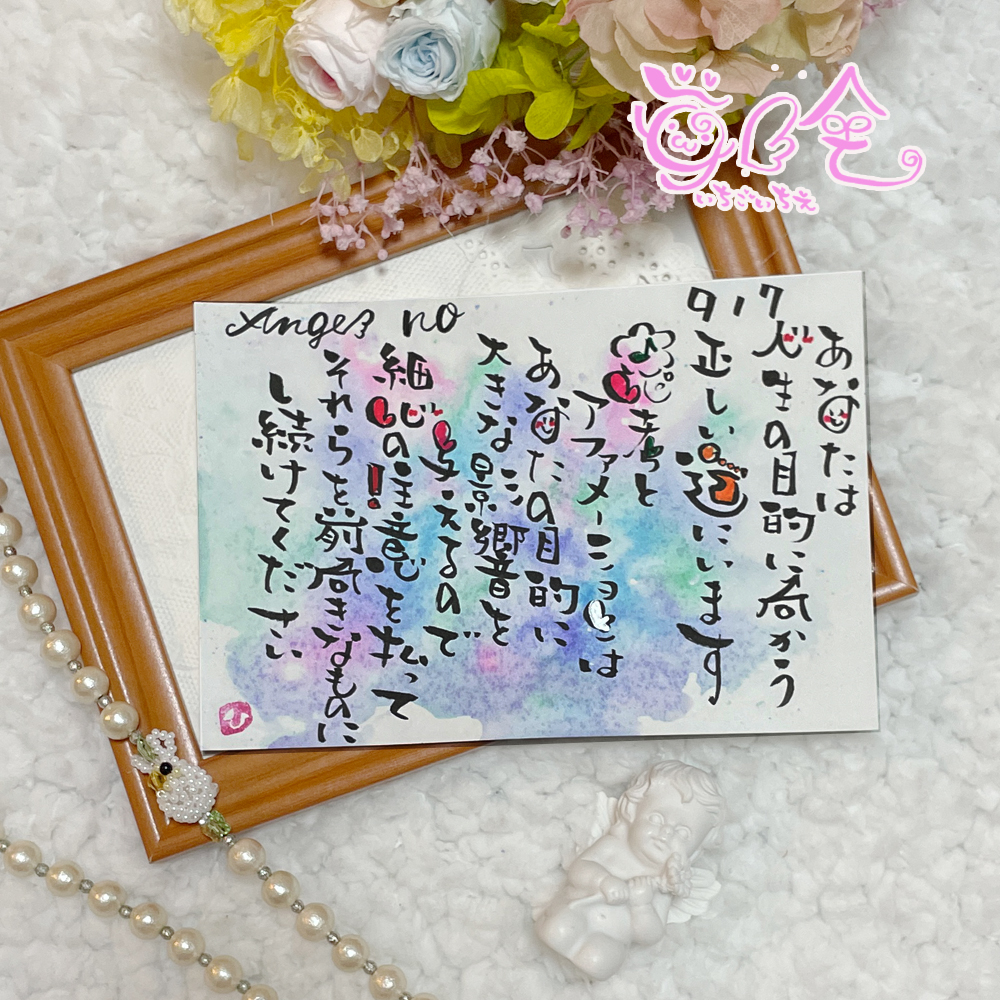 Angel no
917
あなたは
人生の目的に向かう
正しい道にいます
思考と
アファメーションは
あなたの目的に
大きな影響を
与えるので
細心の注意を払って
それらを前向きなものに
し続けてください
いちごいちえ